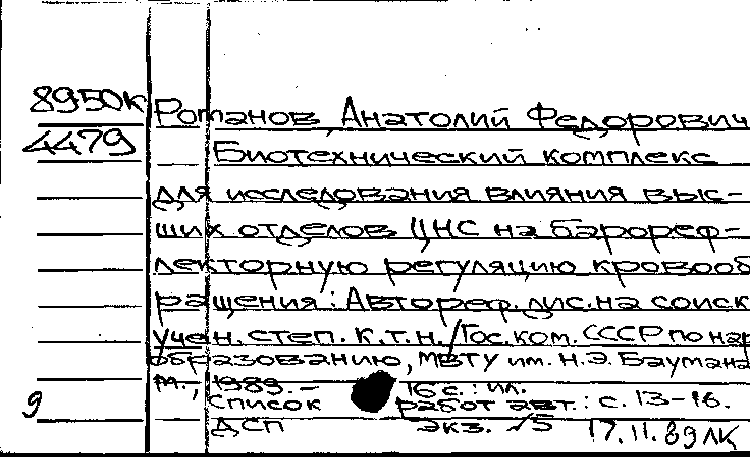 8950к
4479
Романов, Анатолий Федорович
Биотехнический комплекс
для исследования влияния выс-
ших отделов ЦНС на барореф-
лекторную регуляцию кровооб
ращения : Автореф. дис. на соиск
учен. степ. к.т.н. / Гос. ком. СССР по нар
образованию, МВТУ им. Н.Э. Баумана
М., 1989. –
16 с. : ил.
Список работ авт. : с. 13-16.
9
ДСП экз. 17.11.89 ЛК